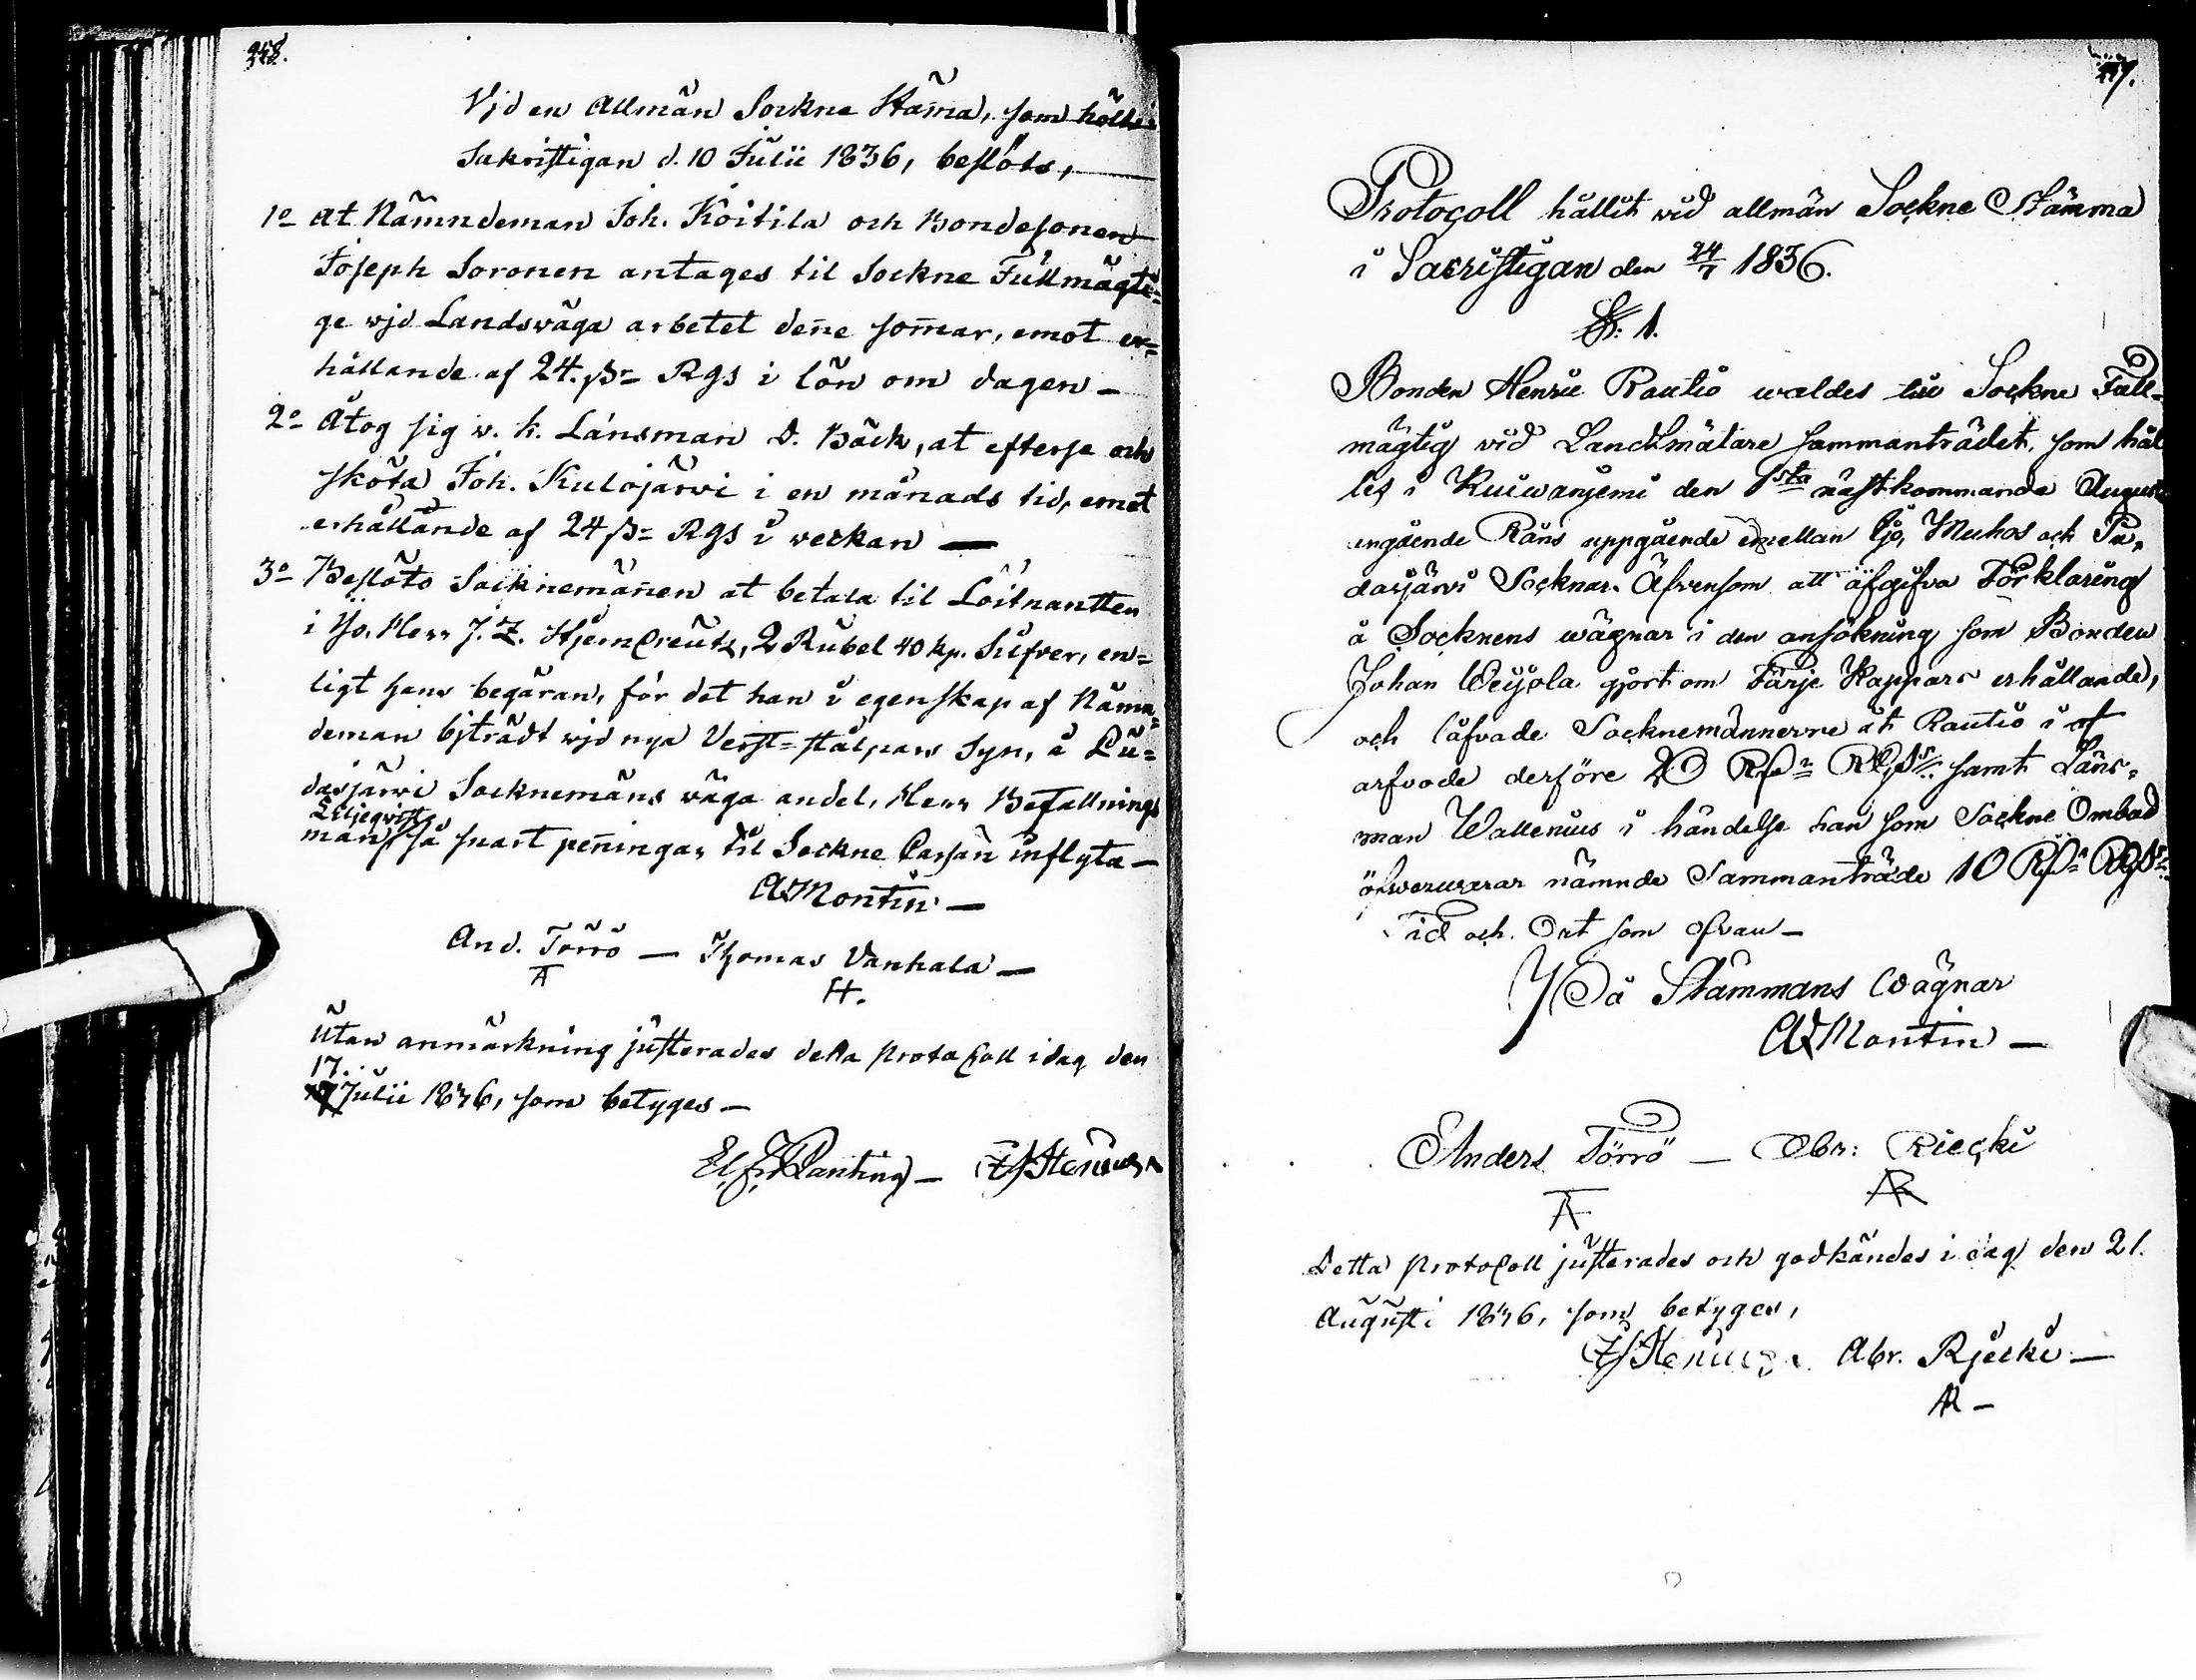 Vjd en Allmän Sockne Stam̃a, som hölts i
Sakristigan d. 10 Julii 1836, beslöts,
1o at Nämndeman Joh. Koitila och Bondesonen
Joseph Soronen antages til Sockne Fullmägti=
ge wjd Landswäga arbetet den̄e som̄ar, emot er=
hållande af 24. ß= Rgs i lön om dagen —
2o åtog sig v. h. Länsman d. Bäck, at efterse och
sköta Joh. Kulojärwi i en månads tid, emot
erhållande af 24 ß= Rgs i weckan —
3o Beslöto Socknemän̄en at betala til Löitnantten
i Ijo, Herr J. Z. Stjerncreutz, 2 Rubel 40 kp. Silfver, en=
ligt hans begäran, för det han i egenskap af Nämn=
deman bjträdt wjd nya Verst=stålpars Syn, å Pu=
dasjärwi Socknemäns wäga andel, Herr Befallnings
Liljeqvist
man, så snart pen̄ingar til Sockne Cassan inflyta —
A Montin —
And. Törrö — Thomas Vanhala —
A H.
Utan anmärkning justerades detta protocoll idag den
17.
Julii 1836, som betyges —
Protocoll hållit wid allmän Sockne Stämma
i Sacristigan den 24/7 1836.
§: 1.
Bonden Henric Rautio waldes till Sockne Full=
mägtig wid Landtmätare sammanträdet, som hål
les i Kuiwaniemi den 1sta nästkommande Augusti
angående Rårs uppgående emellan Ijo, Muhos och Pu=
dasjärvi Socknar. Äfvensom att afgifva Förklaring
å Socknens wägnar i den ansökning som Bonden
Johan Weijola gjort om Färje Kappars erhållande,
och låfvade Socknemännerne åt Rautio i
arfvode derföre 20 Rß= RGS samt Läns=
man Wallenius i händelse han som Sockne Ombud
öfwerwarar nämnde Sammanträde 10 Rß= RGS
Tid och Ort som ofvan —
På Stämmans Wägnar
A Montin —
Anders Törrö — Abr: Riecki
A AR
Detta protocoll justerades och godkändes i dag den 21.
Augusti 1836, som betyges,
Abr. Rjecki —
AR —